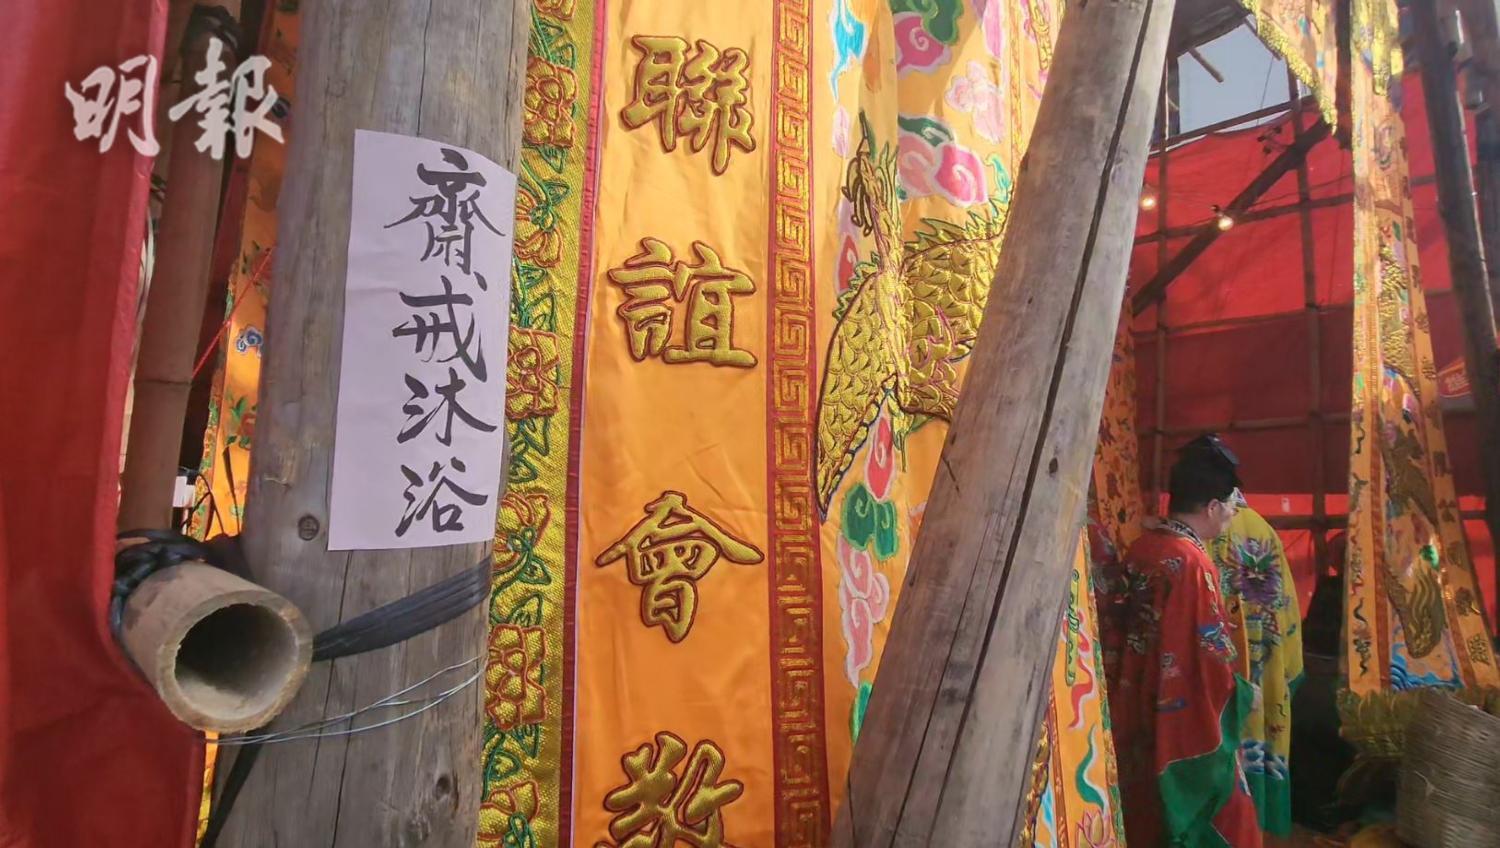 明報
齋戒沐浴
聯誼會敬